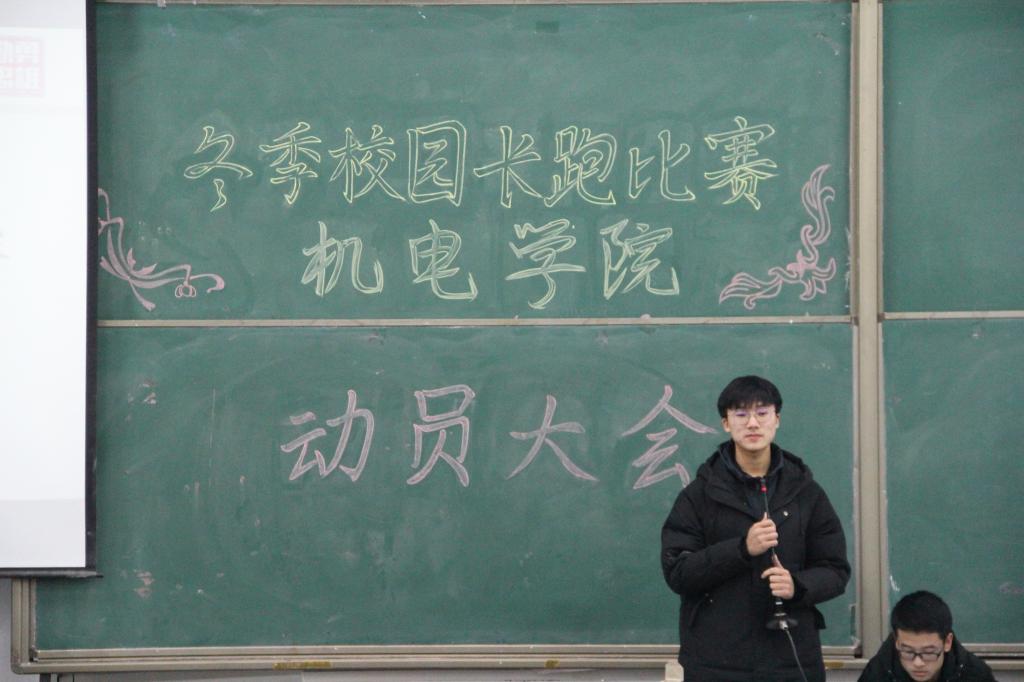 冬季校园长跑比赛
机电学院
动员大会